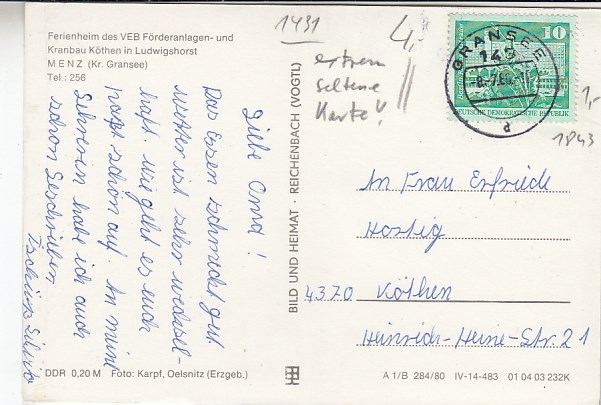 Ferienheim des VEB Förderanlagen- und
Kranbau Köthen in Ludwigshorst
MENZ (Kr. Gransee)
Tel.: 256
1431
4,-
extrem
seltene
Karte!
GRANSEE
10
DEUTSCHE DEMOKRATISCHE REPUBLIK
1,-
1843
Liebe Oma!
Das Essen schmeckt gut
Wetter ist sehr wechsel-
haft. Wie geht es euch
paßt schön auf. An meine
habe ich auch
schon geschrieben
Tschüß Silvio
BILD UND HEIMAT · REICHENBACH (VOGTL)
An Frau Erfriede
Hostig
4370 Köthen
Heinrich-Heine-Str. 21
DDR 0,20 M Foto: Karpf, Oelsnitz (Erzgeb.)
A 1/B 284/80 IV-14-483 01 04 03 232K